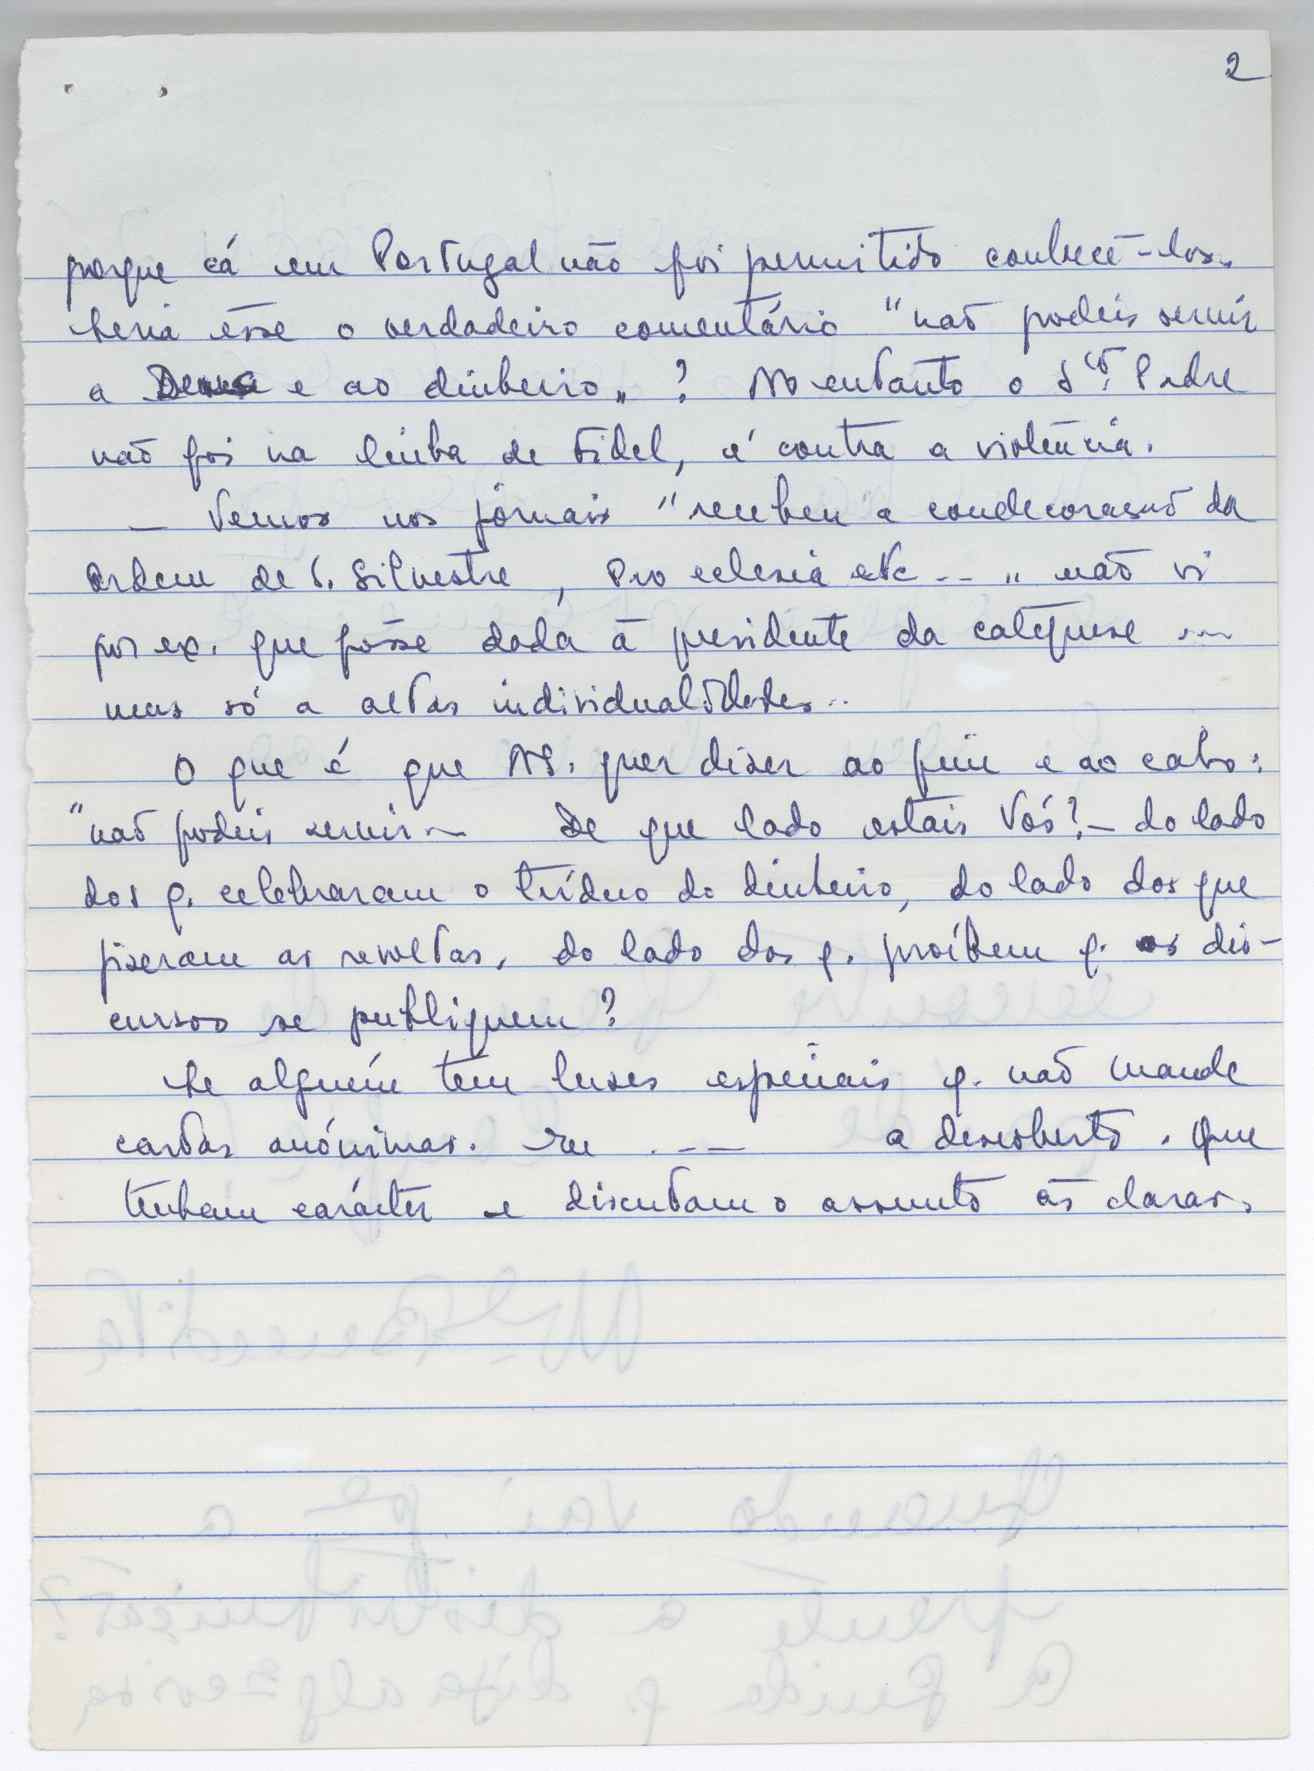 2
porque cá em Portugal não foi permitido conhecê-los.
Seria êsse o verdadeiro comentário "não podeis servir
a Deus e ao dinheiro„ ? No entanto o Sto. Padre
não foi na linha de Fidel, é contra a violência.
— Vemos nos jornais "recebeu a condecoração da
ordem de S. Silvestre, Pro eclesia etc... „ não vi
por ex. que fôsse dada à presidente da catequese ...
mas só a altas individualidades..
O que é que NS. quer dizer ao fim e ao cabo:
"não podeis servir ~ De que lado estais Vós? — do lado
dos q. celebraram o tríduo do dinheiro, do lado dos que
fizeram as revoltas, do lado dos q. proíbem q. os dis-
cursos se publiquem?
Se alguém tem luzes especiais q. não mande
cartas anónimas. ... a descoberto. Que
tenham carácter e discutam o assunto às claras.